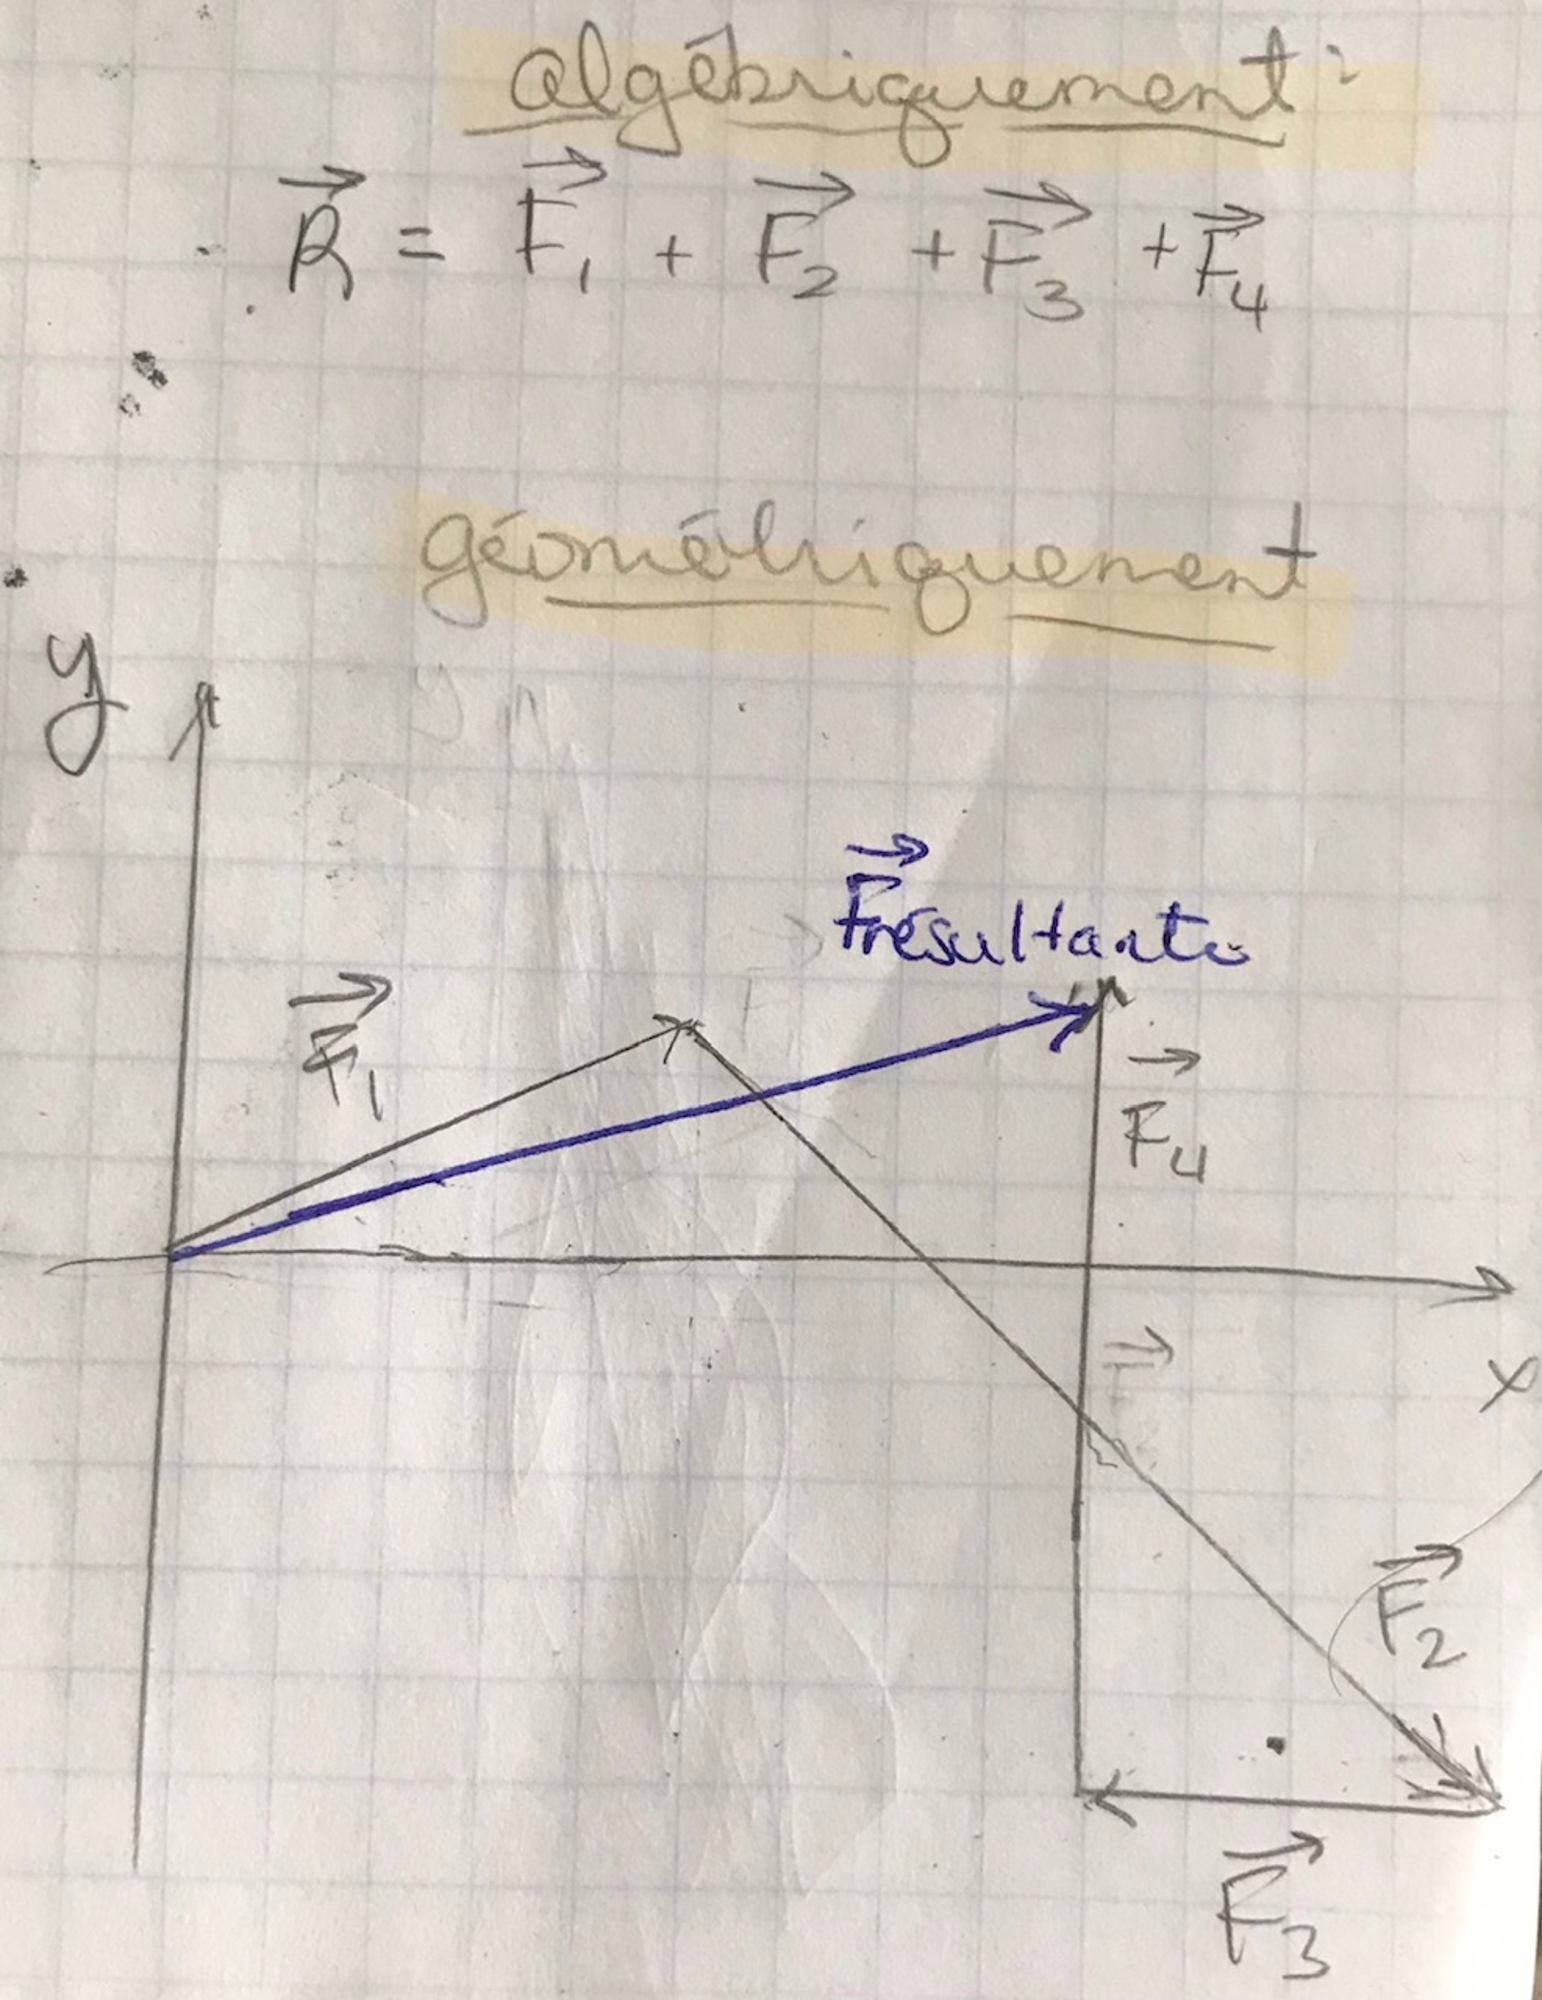 algébriquement:
R = F1 + F2 + F3 + F4
géométriquement
y
Frésultante
F1
F4
x
F2
F3